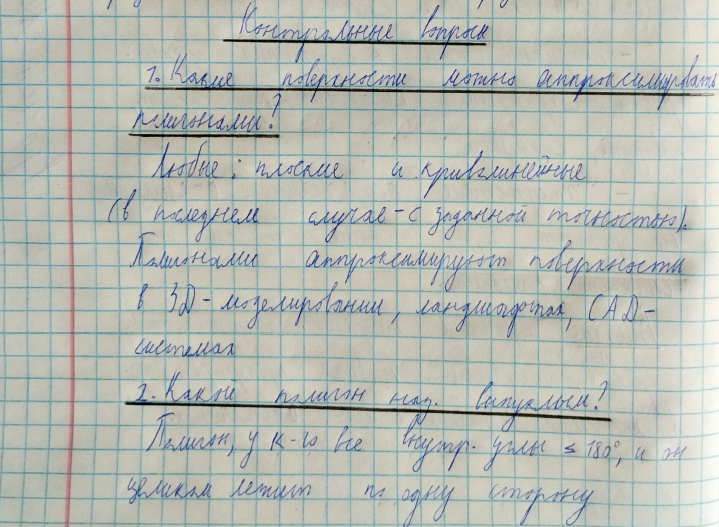 Контрольные вопросы
1. Какие поверхности можно аппроксимировать
полигонами?
Любые: плоские и криволинейные
(в последнем случае - с заданной точностью).
Полигонами аппроксимируют поверхности
в 3D-моделировании, ландшафтах, CAD-
системах
2. Какой полигон наз. выпуклым?
Полигон, у к-го все внутр. углы ≤ 180°, и он
целиком лежит по одну сторону